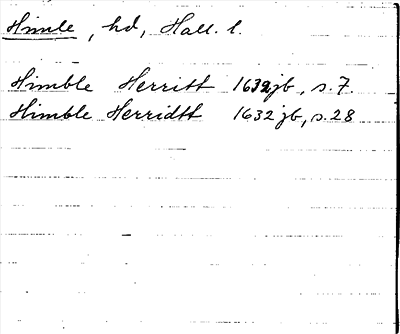 Himle, hd, Hall. l.
Himble Herritt 1632jb, s. 7.
Himble Herridtt 1632jb, s. 28